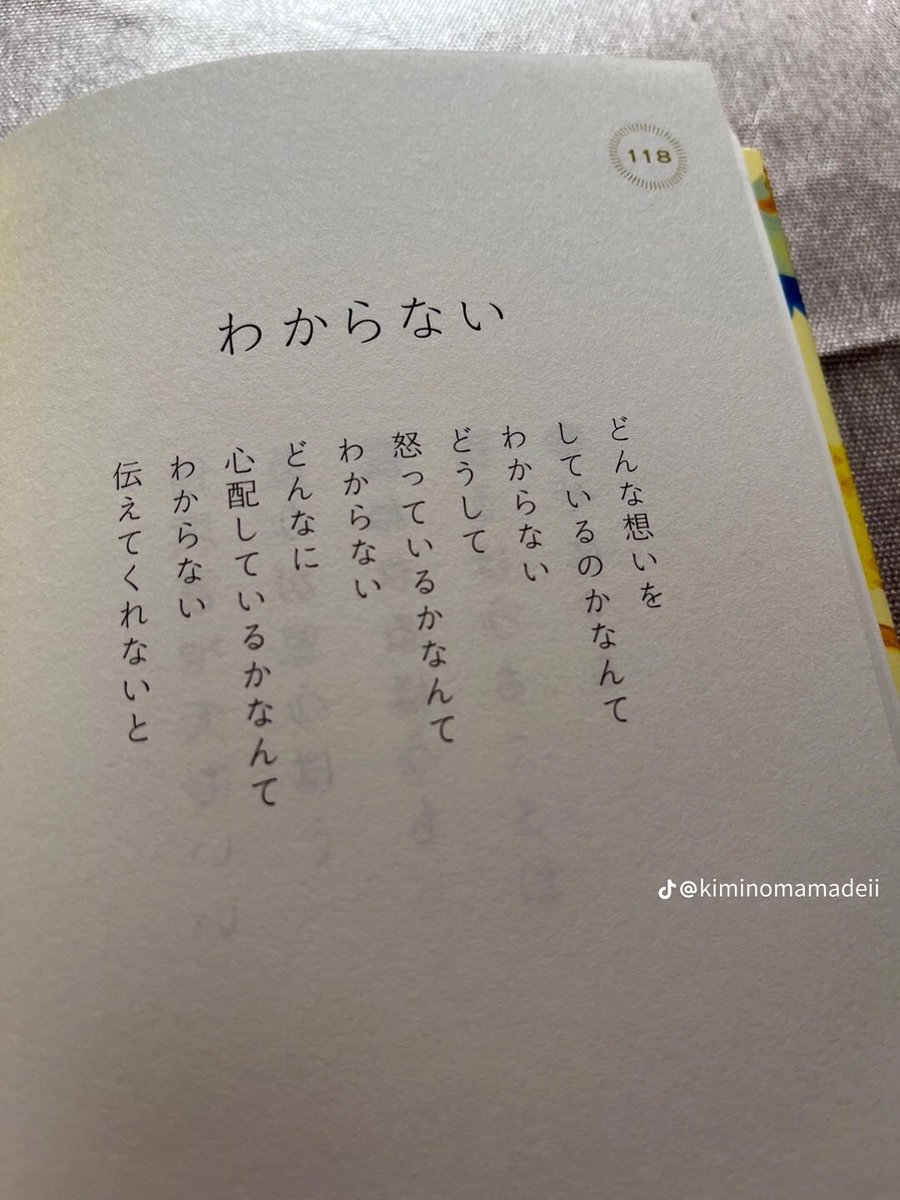 118
わからない
どんな想いを
しているのかなんて
わからない
どうして
怒っているかなんて
わからない
どんなに
心配しているかなんて
わからない
伝えてくれないと
@kiminomamadeii